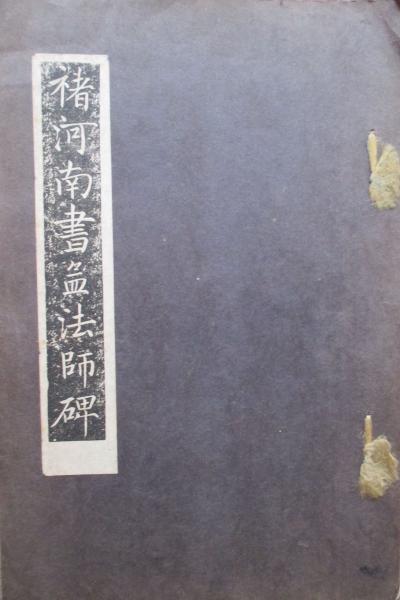 褚河南書孟法師碑